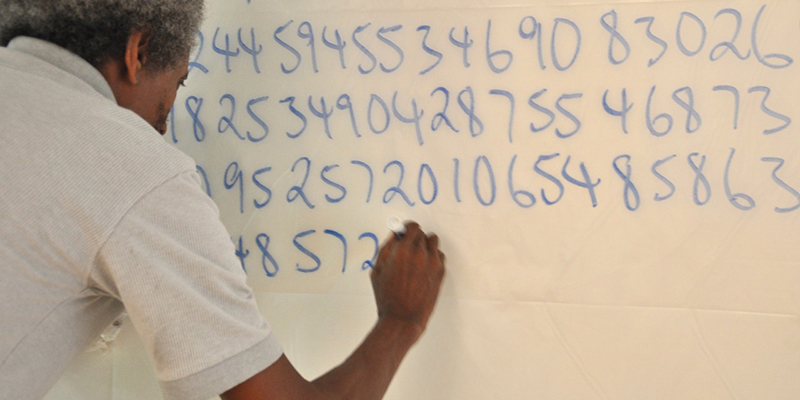 244594553469083026
1825349042875546873
9525720106548 5863
48572